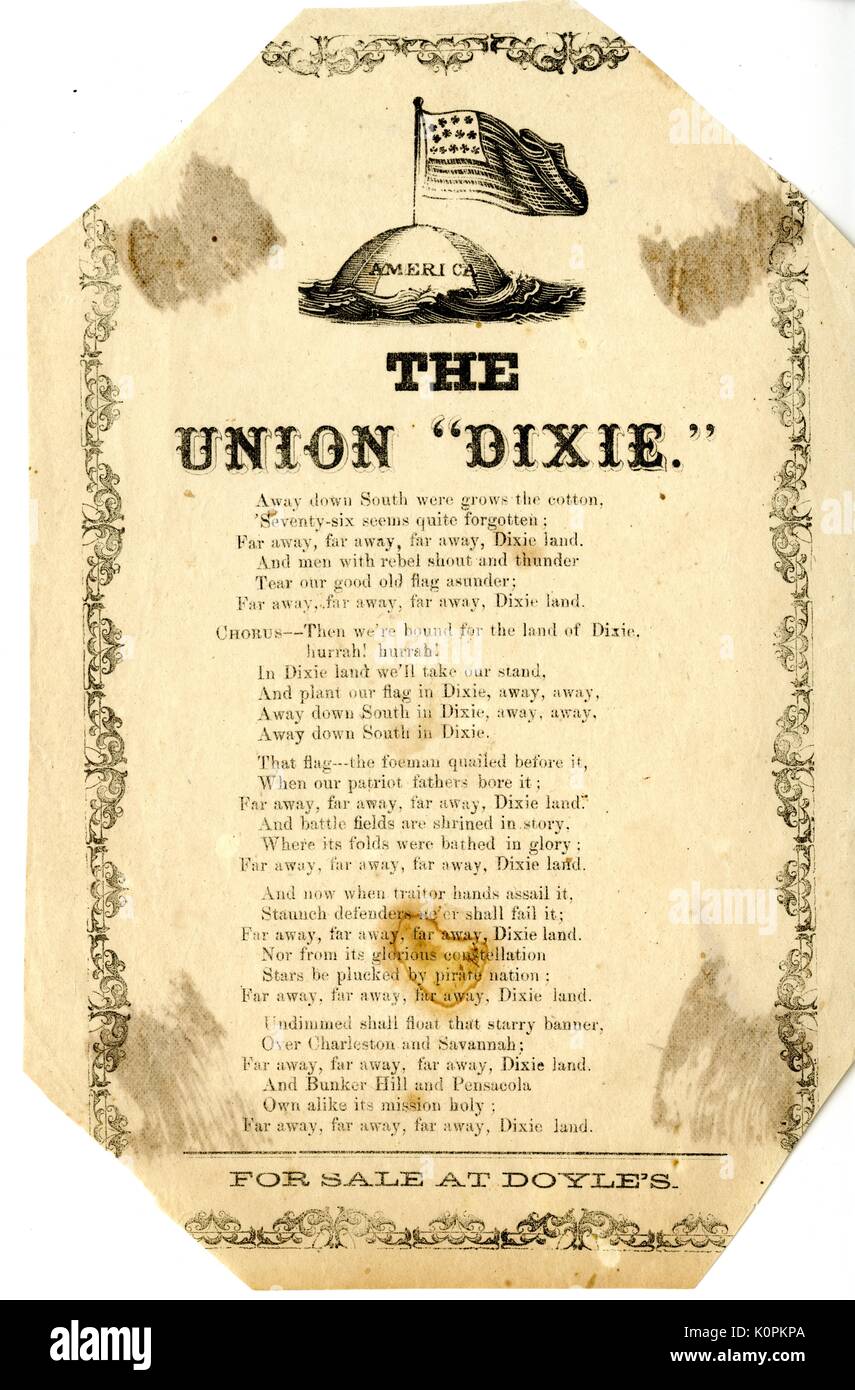 AMERICA
THE
UNION "DIXIE."
Away down South were grows the cotton,
'Seventy-six seems quite forgotten ;
Far away, far away, far away, Dixie land.
And men with rebel shout and thunder
Tear our good old flag asunder;
Far away, far away, far away, Dixie land.
CHORUS--Then we're bound for the land of Dixie,
hurrah! hurrah!
In Dixie land we'll take our stand,
And plant our flag in Dixie, away, away,
Away down South in Dixie, away, away,
Away down South in Dixie.
That flag---the foeman quailed before it,
When our patriot fathers bore it ;
Far away, far away, far away, Dixie land.
And battle fields are shrined in story,
Where its folds were bathed in glory ;
Far away, far away, far away, Dixie land.
And now when traitor hands assail it,
Staunch defenders ne'er shall fail it;
Far away, far away, far away, Dixie land.
Nor from its glorious constellation
Stars be plucked by pirate nation ;
Far away, far away, far away, Dixie land.
Undimmed shall float that starry banner,
Over Charleston and Savannah;
Far away, far away, far away, Dixie land.
And Bunker Hill and Pensacola
Own alike its mission holy ;
Far away, far away, far away, Dixie land.
FOR SALE AT DOYLE'S.
alamy
Image ID: K0PKPA
www.alamy.com